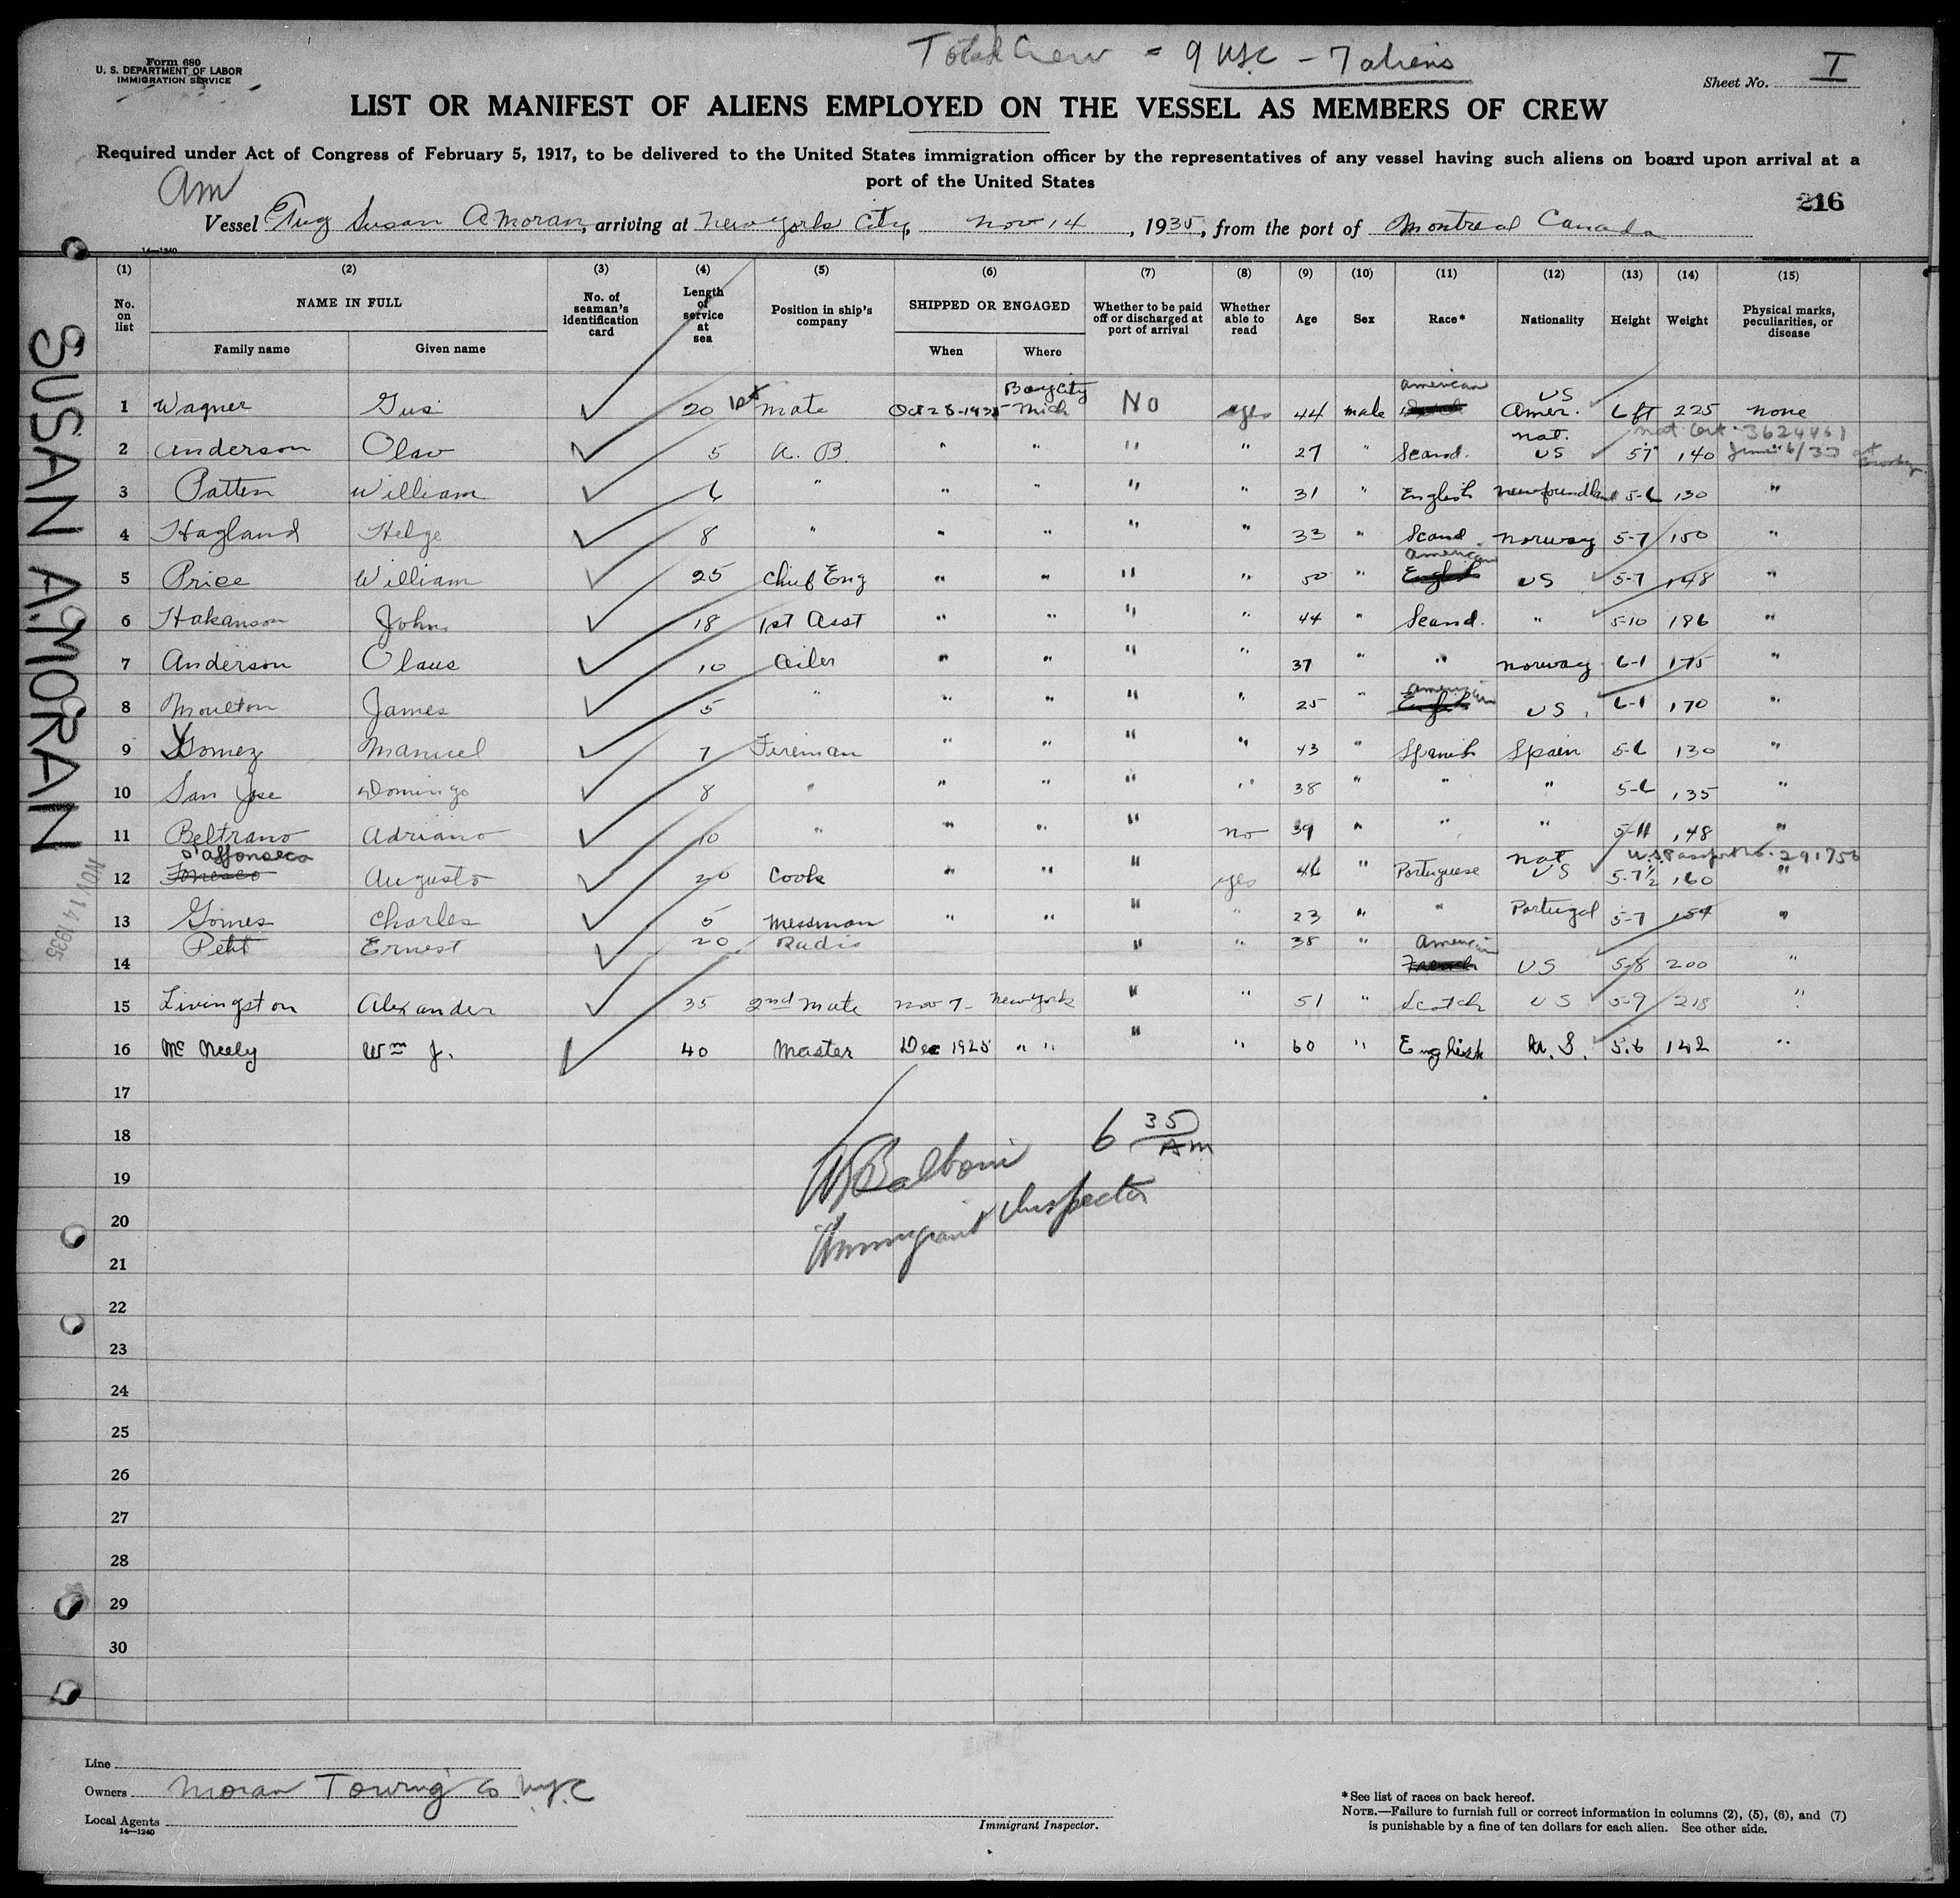 Total Crew = 9 USC - 7 aliens
Form 680
U. S. DEPARTMENT OF LABOR
IMMIGRATION SERVICE
Sheet No. I
LIST OR MANIFEST OF ALIENS EMPLOYED ON THE VESSEL AS MEMBERS OF CREW
Required under Act of Congress of February 5, 1917, to be delivered to the United States immigration officer by the representatives of any vessel having such aliens on board upon arrival at a
port of the United States
Am
216
Vessel Tug Susan A Moran, arriving at New York City, Nov 14, 1935, from the port of Montreal Canada
14—1240
(1) (2) (3) (4) (5) (6) (7) (8) (9) (10) (11) (12) (13) (14) (15)
No. on list
NAME IN FULL
Family name
Given name
No. of seaman's identification card
Length of service at sea
Position in ship's company
SHIPPED OR ENGAGED
When
Where
Whether to be paid off or discharged at port of arrival
Whether able to read
Age
Sex
Race*
Nationality
Height
Weight
Physical marks, peculiarities, or disease
Bay City american US
1 Wagner Gus 20 1st mate Oct 28-1935 Mich No yes 44 male Amer. 6 ft 225 none
nat. nat Cert. 3624461
2 Anderson Olav 5 A. B. " " " " 27 " Scand. US 5 7" 140 June 6/33 at
3 Patten William 6 " " " " " 31 " English Newfoundland 5-6 130 "
4 Hagland Helge 8 " " " " " 33 " Scand Norway 5-7 150 "
american
5 Price William 25 Chief Eng " " " " 50 " English US 5-7 148 "
6 Hakanson John 18 1st Asst " " " " 44 " Scand. " 5-10 186 "
7 Anderson Olaus 10 Oiler " " " " 37 " " Norway 6-1 175 "
american
8 Moulton James 5 " " " " " 25 " English US. 6-1 170 "
9 Gomez Manuel 7 Fireman " " " " 43 " Spanish Spain 5-6 130 "
10 San Jose Domingo 8 " " " " " 38 " " " 5-6 135 "
11 Beltrano Adriano 10 " " " " no 39 " " " 5-11 148 "
D'affonseca nat U.S. Passport No. 291756
12 Fonseco Augusto 20 Cook " " " yes 46 " Portuguese US 5-7½ 160 "
13 Gomes Charles 5 Messman " " " " 23 " " Portugal 5-7 154 "
Petit Ernest 20 Radio " " 38 " American
14 French US 5-8 200 "
15 Livingston Alexander 35 2nd Mate Nov 7- New York " " 51 " Scotch US 5-9 218 "
16 Mc Neely Wm J. 40 Master Dec 1925 " " " " 60 " English U.S. 5.6 142 "
17
18
19
20
21
22
23
24
25
26
27
28
29
30
6 35 AM
Balboni
Immigrant Inspector
SUSAN A. MORAN
NOV 14 1935
Line
Owners Moran Towing Co N.Y.C
Local Agents
14—1240
Immigrant Inspector.
* See list of races on back hereof.
NOTE.—Failure to furnish full or correct information in columns (2), (5), (6), and (7)
is punishable by a fine of ten dollars for each alien. See other side.